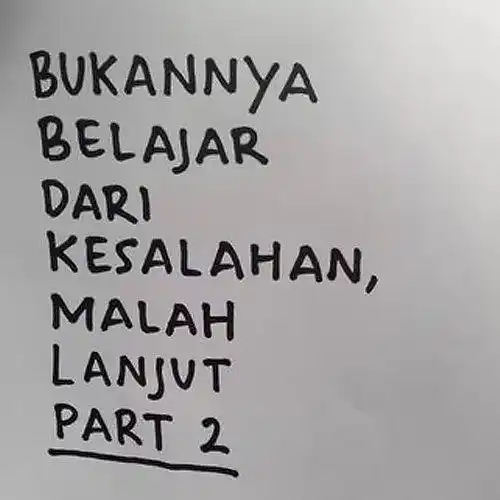 BUKANNYA
BELAJAR
DARI
KESALAHAN,
MALAH
LANJUT
PART 2